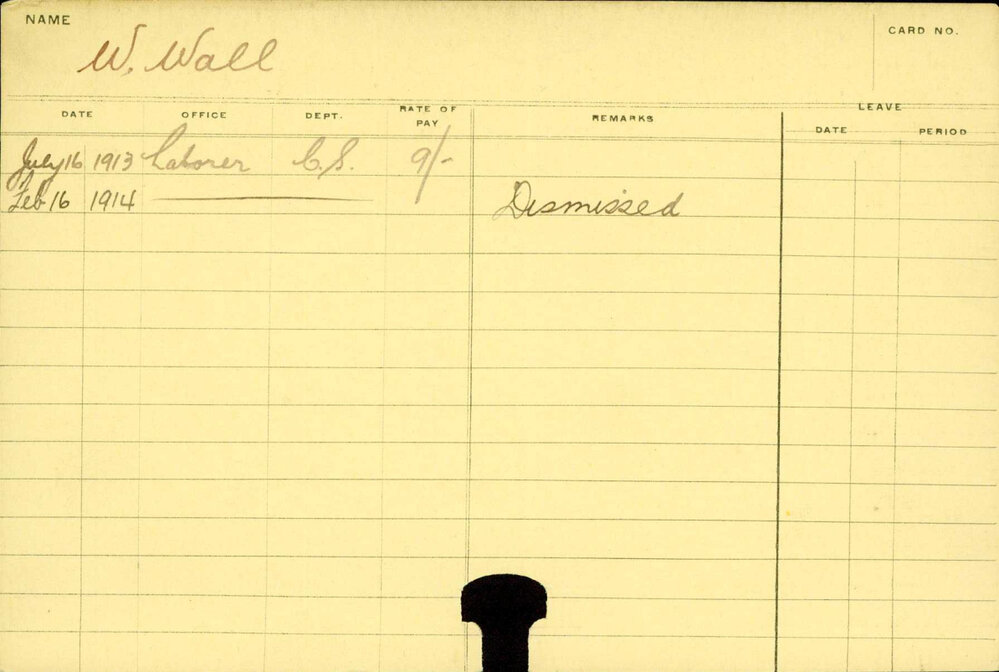 NAME
CARD NO.
W. Wall
DATE OFFICE DEPT. RATE OF PAY REMARKS LEAVE
DATE PERIOD
July 16 1913 Laborer C.S. 9/-
Feb 16 1914 Dismissed